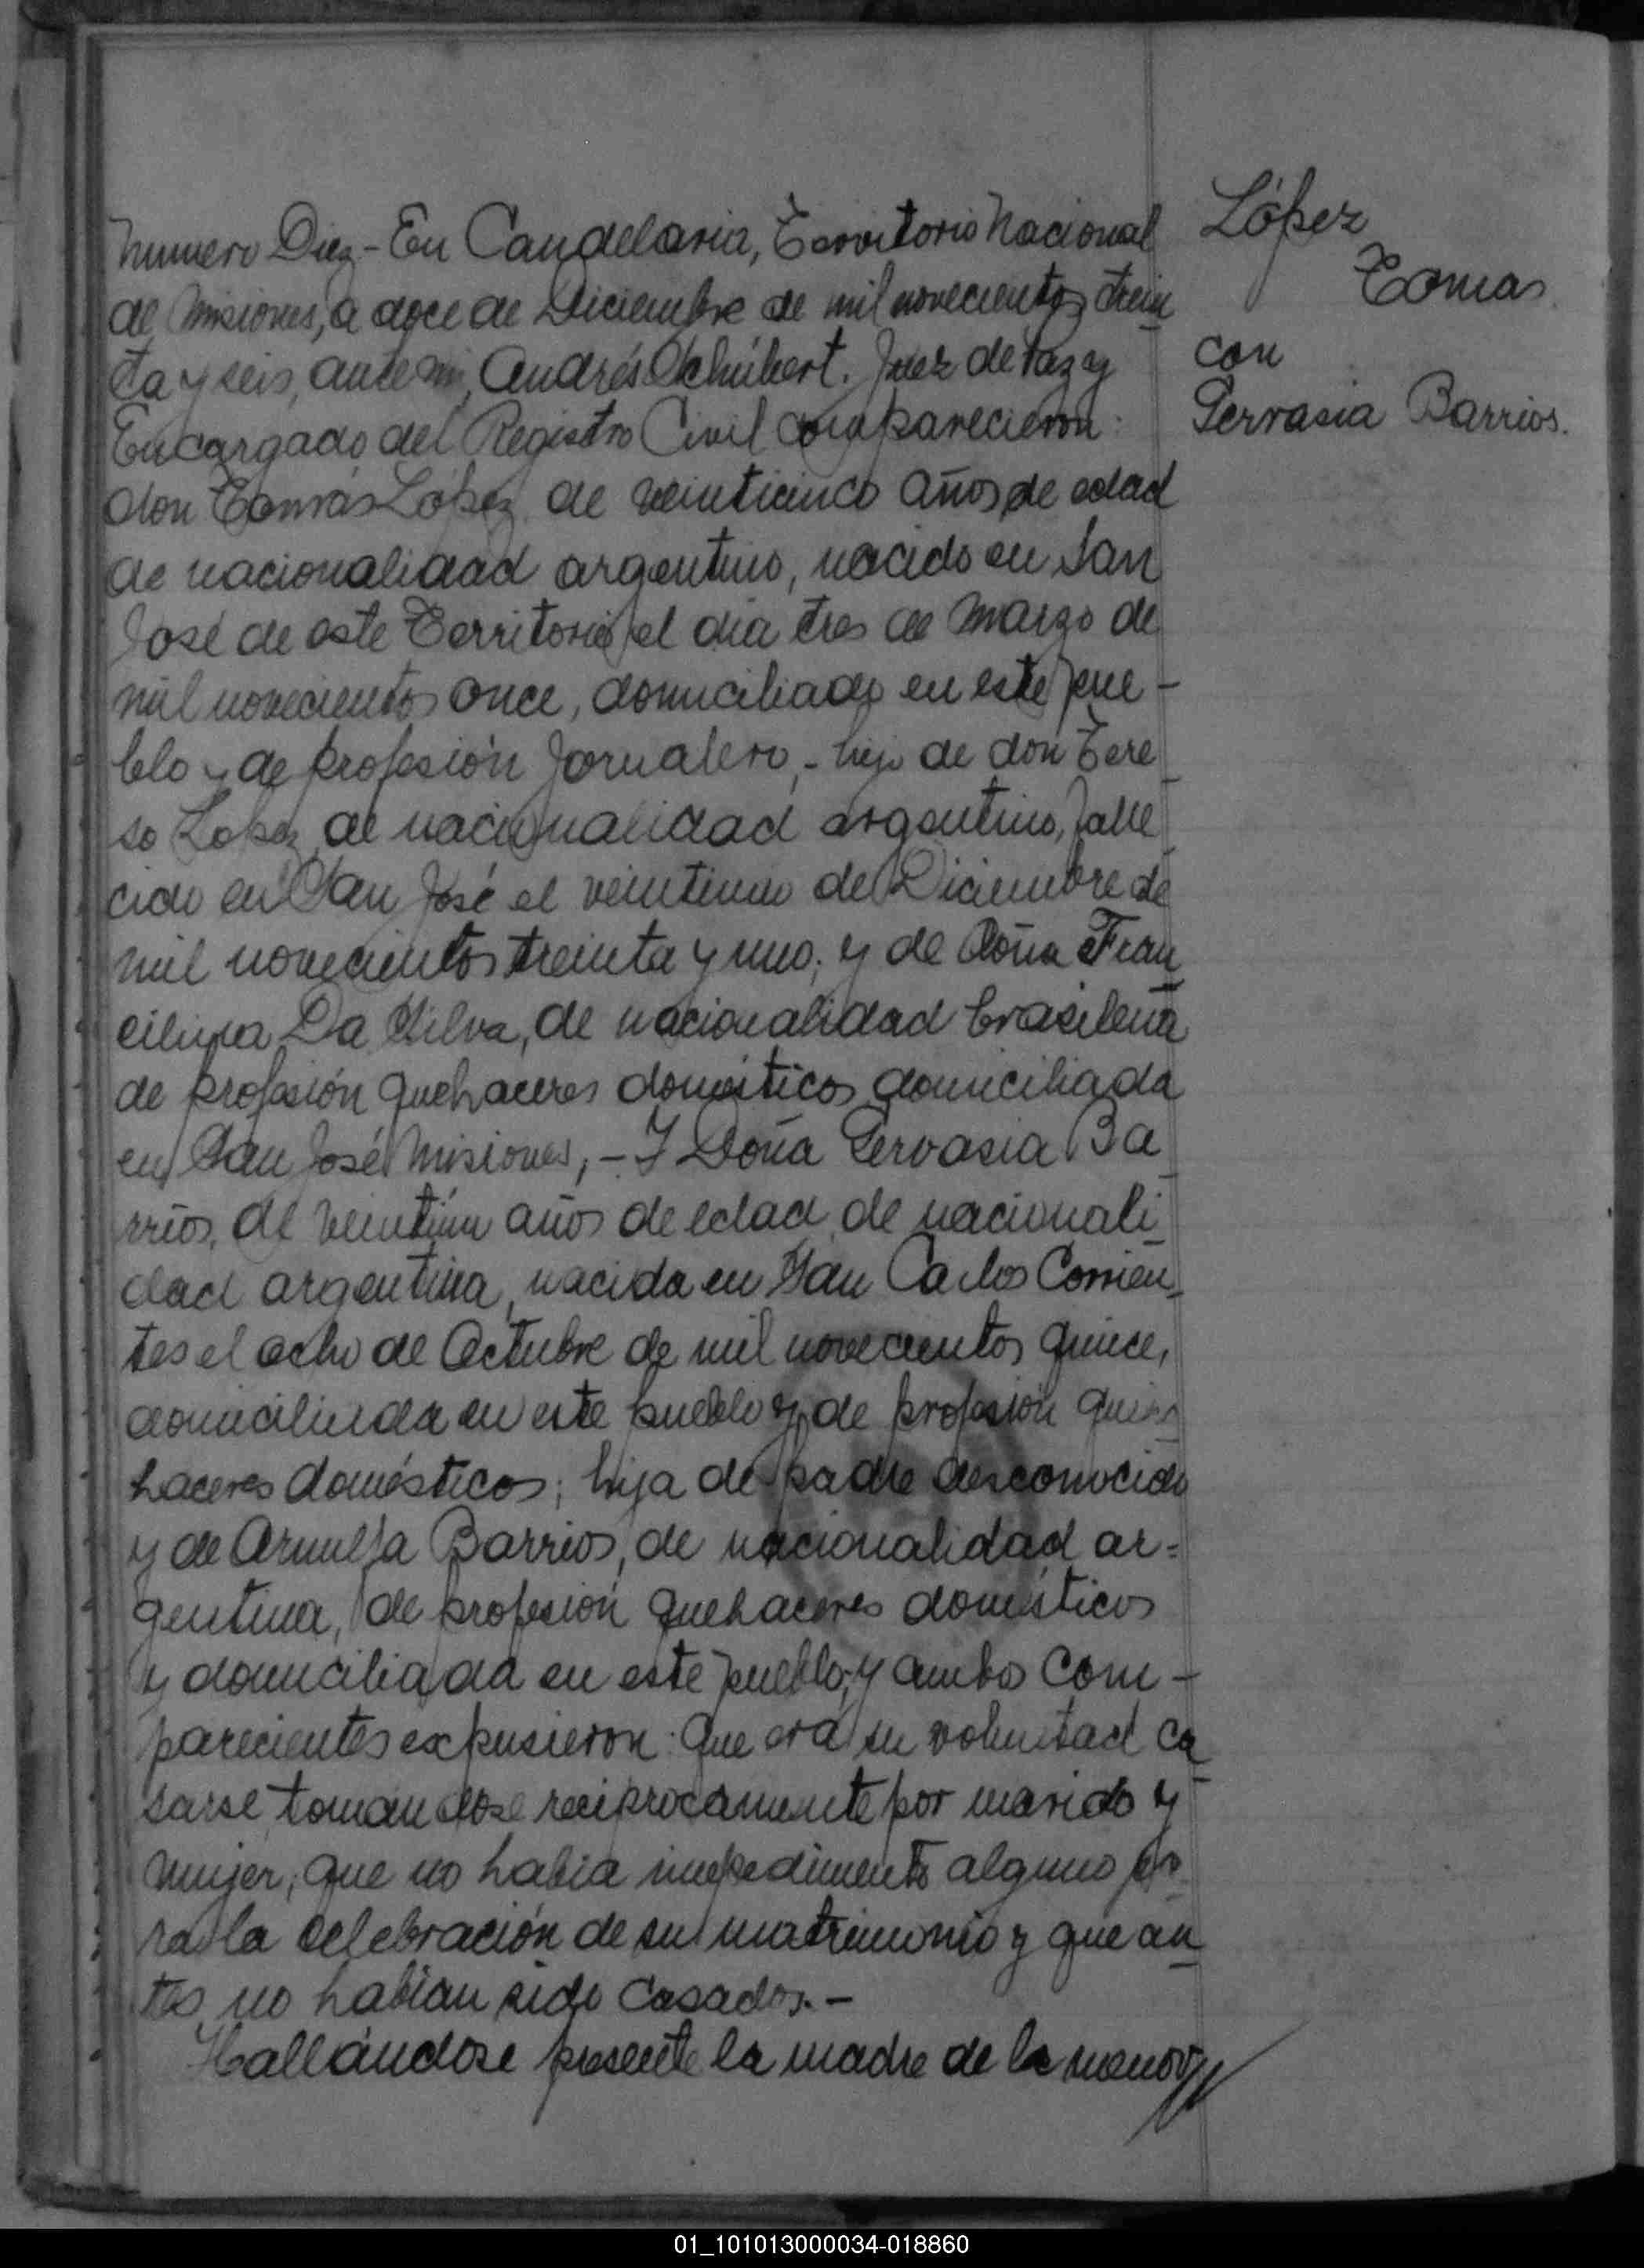 López
Tomas
con
Gervasia Barrios.
Número Diez - En Candelaria, Territorio Nacional
de Misiones, a doce de Diciembre de mil novecientos trein
ta y seis, ante mi, Andrés Schubert. Juez de Paz y
Encargado del Registro Civil comparecieron:
don Tomás López de veinticinco años de edad
de nacionalidad argentino, nacido en San
José de este Territorio, el dia tres de Marzo de
mil novecientos once, domiciliado en este pue-
blo y de profesión Jornalero, - hijo de don Tere
so López, de nacionalidad argentino, falle
cido en San José el veintiuno de Diciembre de
mil novecientos treinta y uno; y de Doña Fran
cilina Da Silva, de nacionalidad brasileña
de profesión quehaceres domésticos domiciliada
en San José Misiones, - Y Doña Gervasia Ba
rrios, de veintiún años de edad, de nacionali
dad argentina, nacida en San Carlos Corrien
tes el ocho de Octubre de mil novecientos quince,
domiciliada en este pueblo y de profesión
haceres domésticos; hija de padre desconocido
y de Arnulfa Barrios, de nacionalidad ar=
gentina, de profesión quehaceres domésticos
y domiciliada en este pueblo; y ambos com-
parecientes expusieron: Que era su voluntad ca
sarse, tomándose reciprocamente por marido y
mujer; que no habia impedimento alguno pa
ra la celebración de su matrimonio y que an
tes no habian sido casados. -
Hallándose presente la madre de la menor
01_101013000034-018860